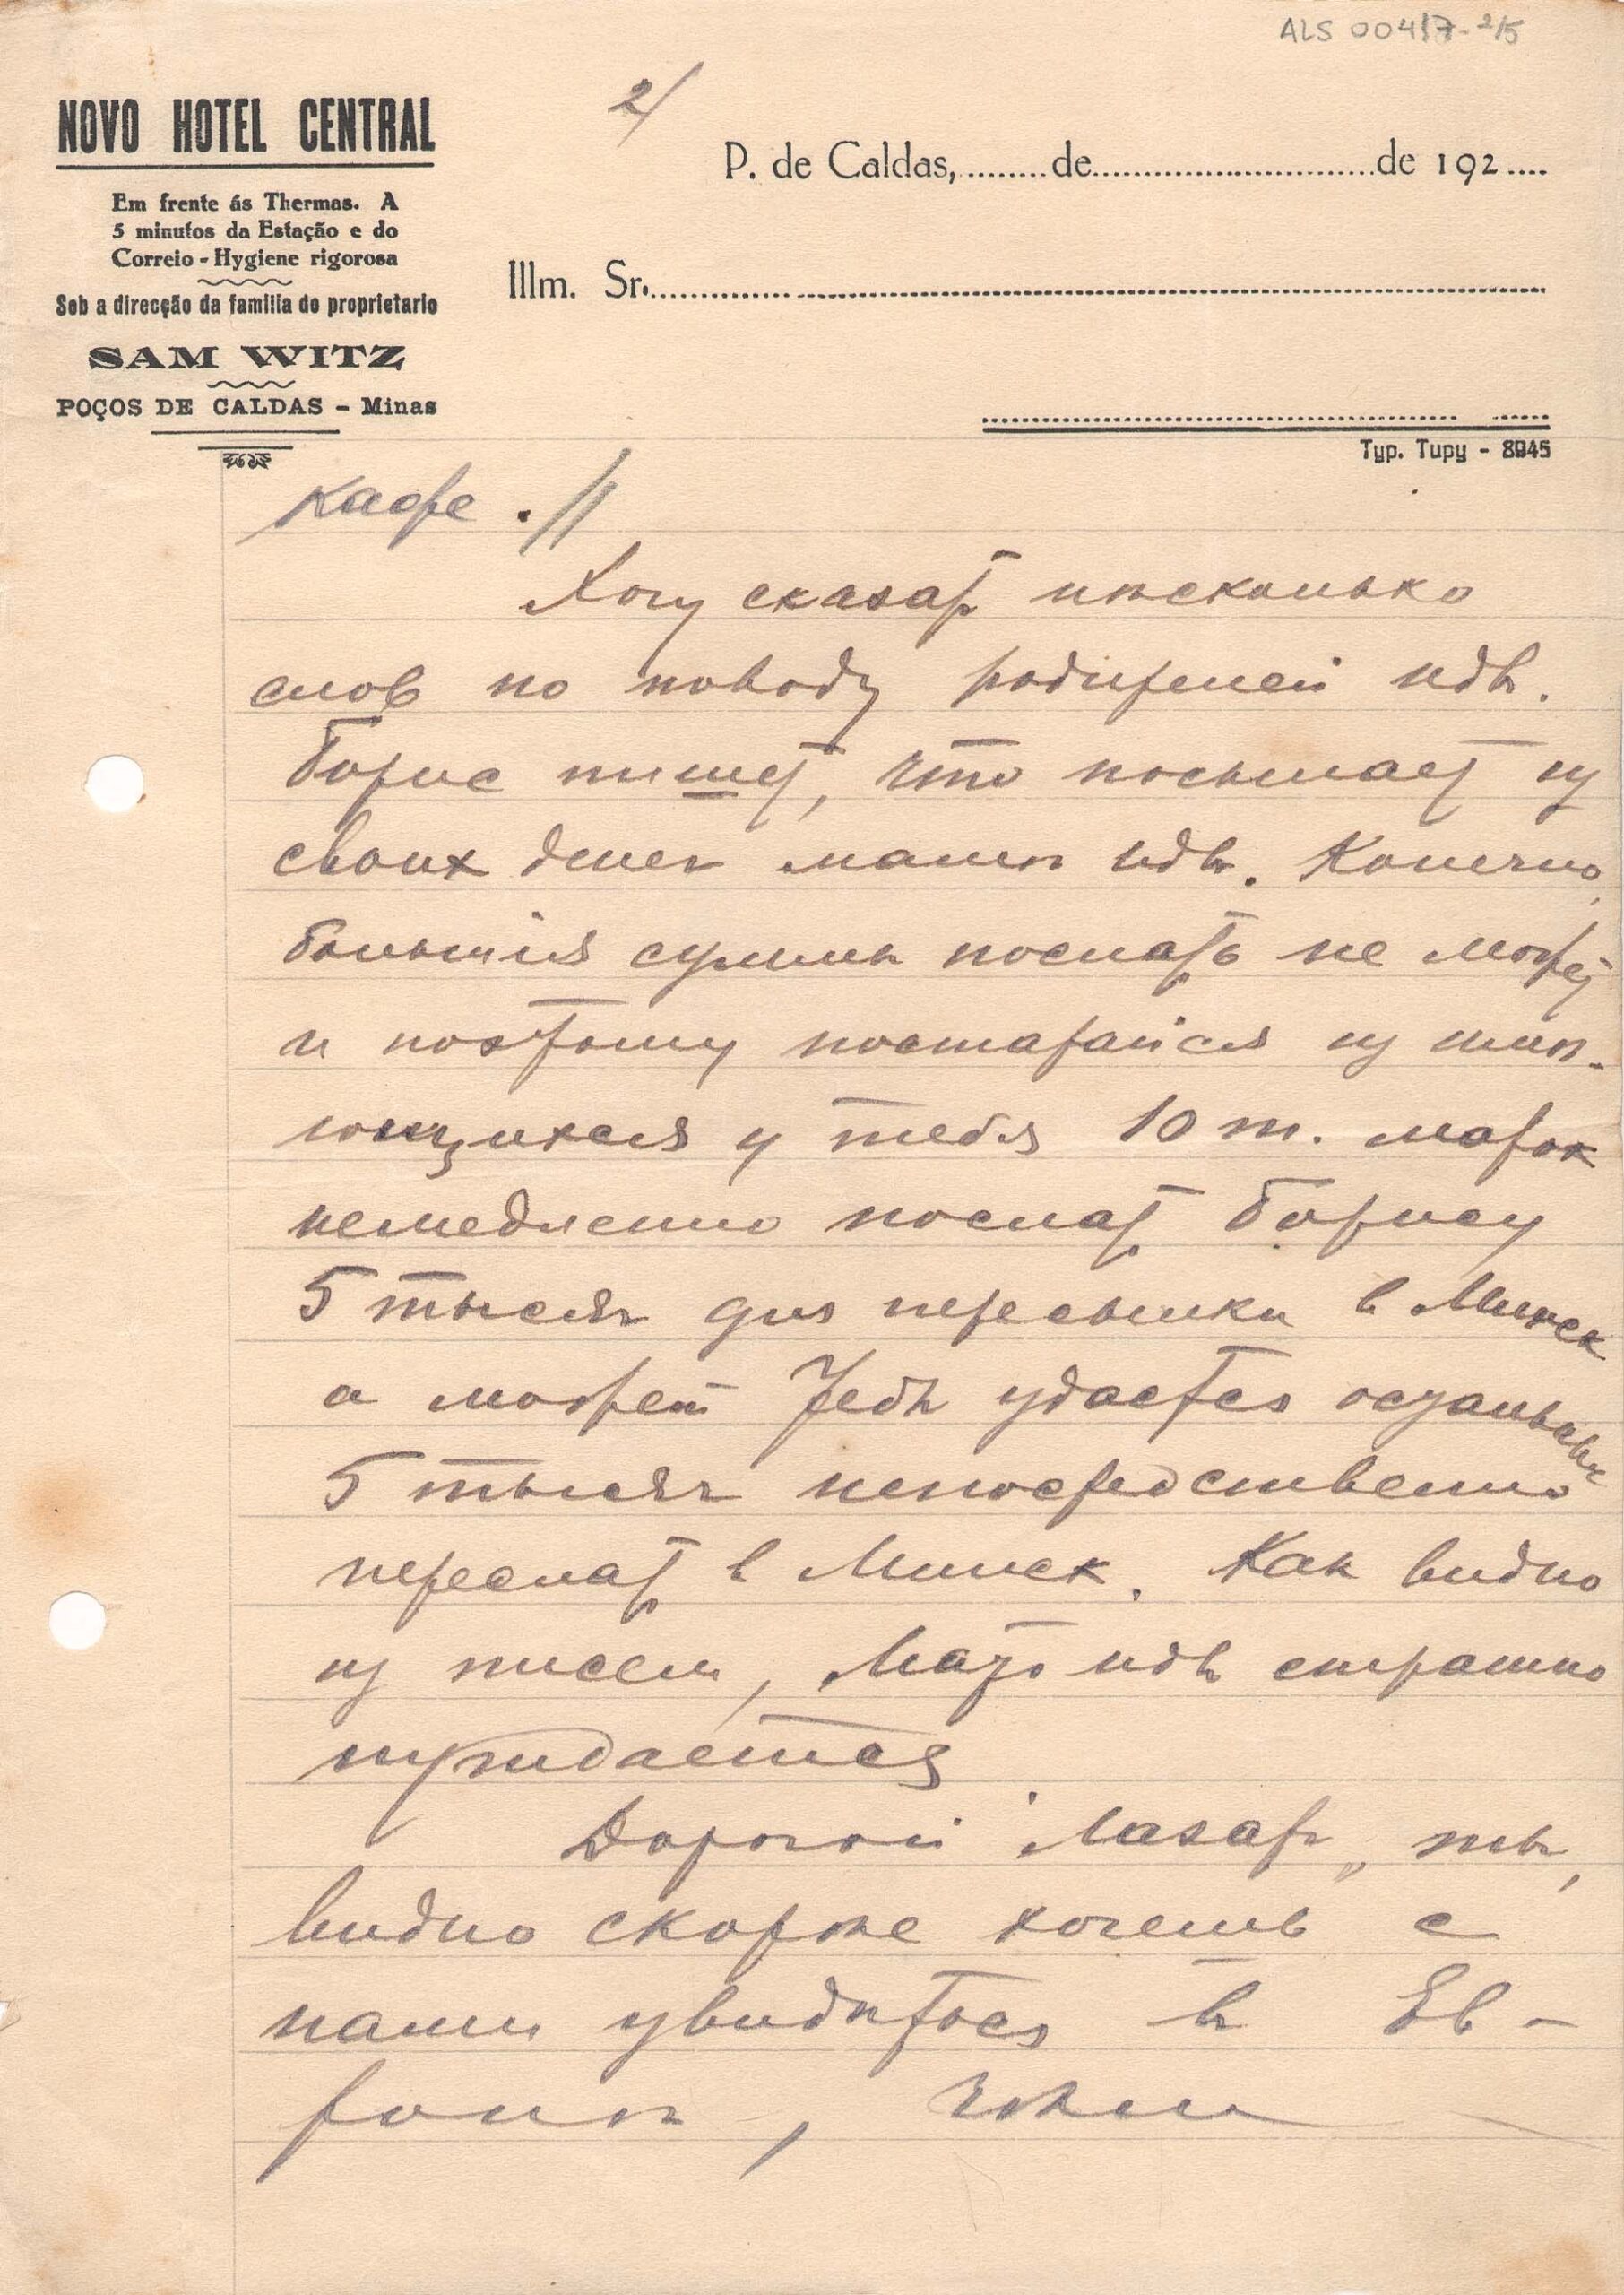 ALS 004/7-2/5
2/
NOVO HOTEL CENTRAL
Em frente ás Thermas. A
5 minutos da Estação e do
Correio - Hygiene rigorosa
Sob a direcção da familia do proprietario
SAM WITZ
POÇOS DE CALDAS - Minas
P. de Caldas, ........ de ............................ de 192 ....
Illm. Sr. ............................................................
Typ. Tupy - 8945
кафе . //
Хочу сказать нѣсколько
слов по поводу родителей
Борис пишет, что посылает из
своих денег маме Конечно,
большія суммы послать не может
и поэтому постарайся из имѣ-
ющихся у тебя 10 т. марок
немедленно послать Борису
5 тысяч для пересылки в Минск
а может Тебѣ удастся остальные
5 тысяч непосредственно
переслать в Минск. Как видно
из писем, Мать страшно
нуждается
Дорогой Лазарь, ты,
видно скорѣе хочешь с
нами увидѣться в Ев-
ропѣ, чѣм